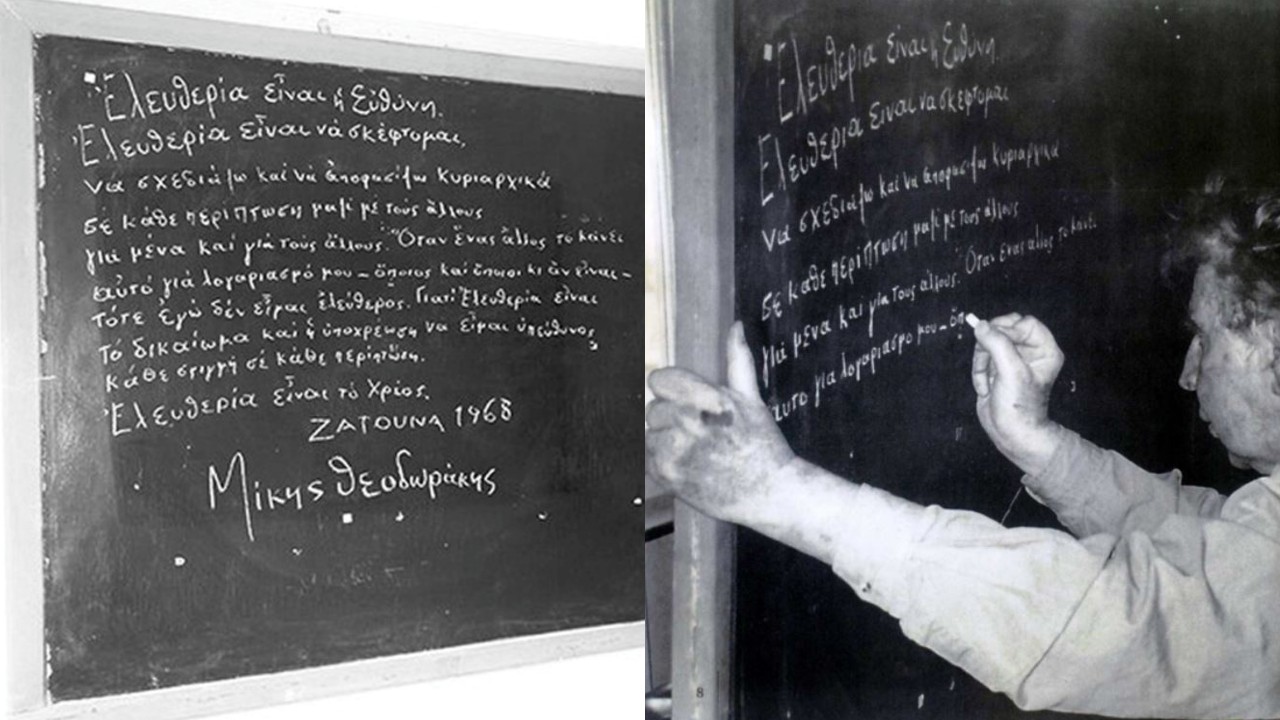 Ἐλευθερία εἶναι ἡ Εὐθύνη.
Ἐλευθερία εἶναι νὰ σκέφτομαι,
νά σχεδιάζω καί νά ἀποφασίζω κυριαρχικά
σέ κάθε περίπτωση μαζί μέ τούς ἄλλους
γιά μένα καί γιά τούς ἄλλους. Ὅταν ἕνας ἄλλος τό κάνει
αὐτό γιά λογαριασμό μου – ὅποιος καί ὅποιοι κι ἄν εἶναι –
τότε ἐγώ δέν εἶμαι ἐλεύθερος. Γιατί Ἐλευθερία εἶναι
τό δικαίωμα καί ἡ ὑποχρέωση νά εἶμαι ὑπεύθυνος
κάθε στιγμή σέ κάθε περίπτωση.
Ἐλευθερία εἶναι τό Χρέος.
ΖΑΤΟΥΝΑ 1968
Μίκης Θεοδωράκης
Ἐλευθερία εἶναι ἡ Εὐθύνη.
Ἐλευθερία εἶναι νά σκέφτομαι
νά σχεδιάζω καί νά ἀποφασίζω κυριαρχικά
σέ κάθε περίπτωση μαζί μέ τούς ἄλλους
γιά μένα καί γιά τούς ἄλλους. Ὅταν ἕνας ἄλλος τό κάνει
αὐτό γιά λογαριασμό μου – ὅπ
8